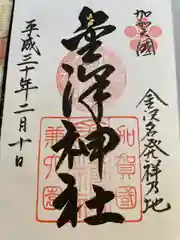 加賀國
金沢名発祥乃地
金澤神社
加賀國
兼六園
平成三十年二月十日